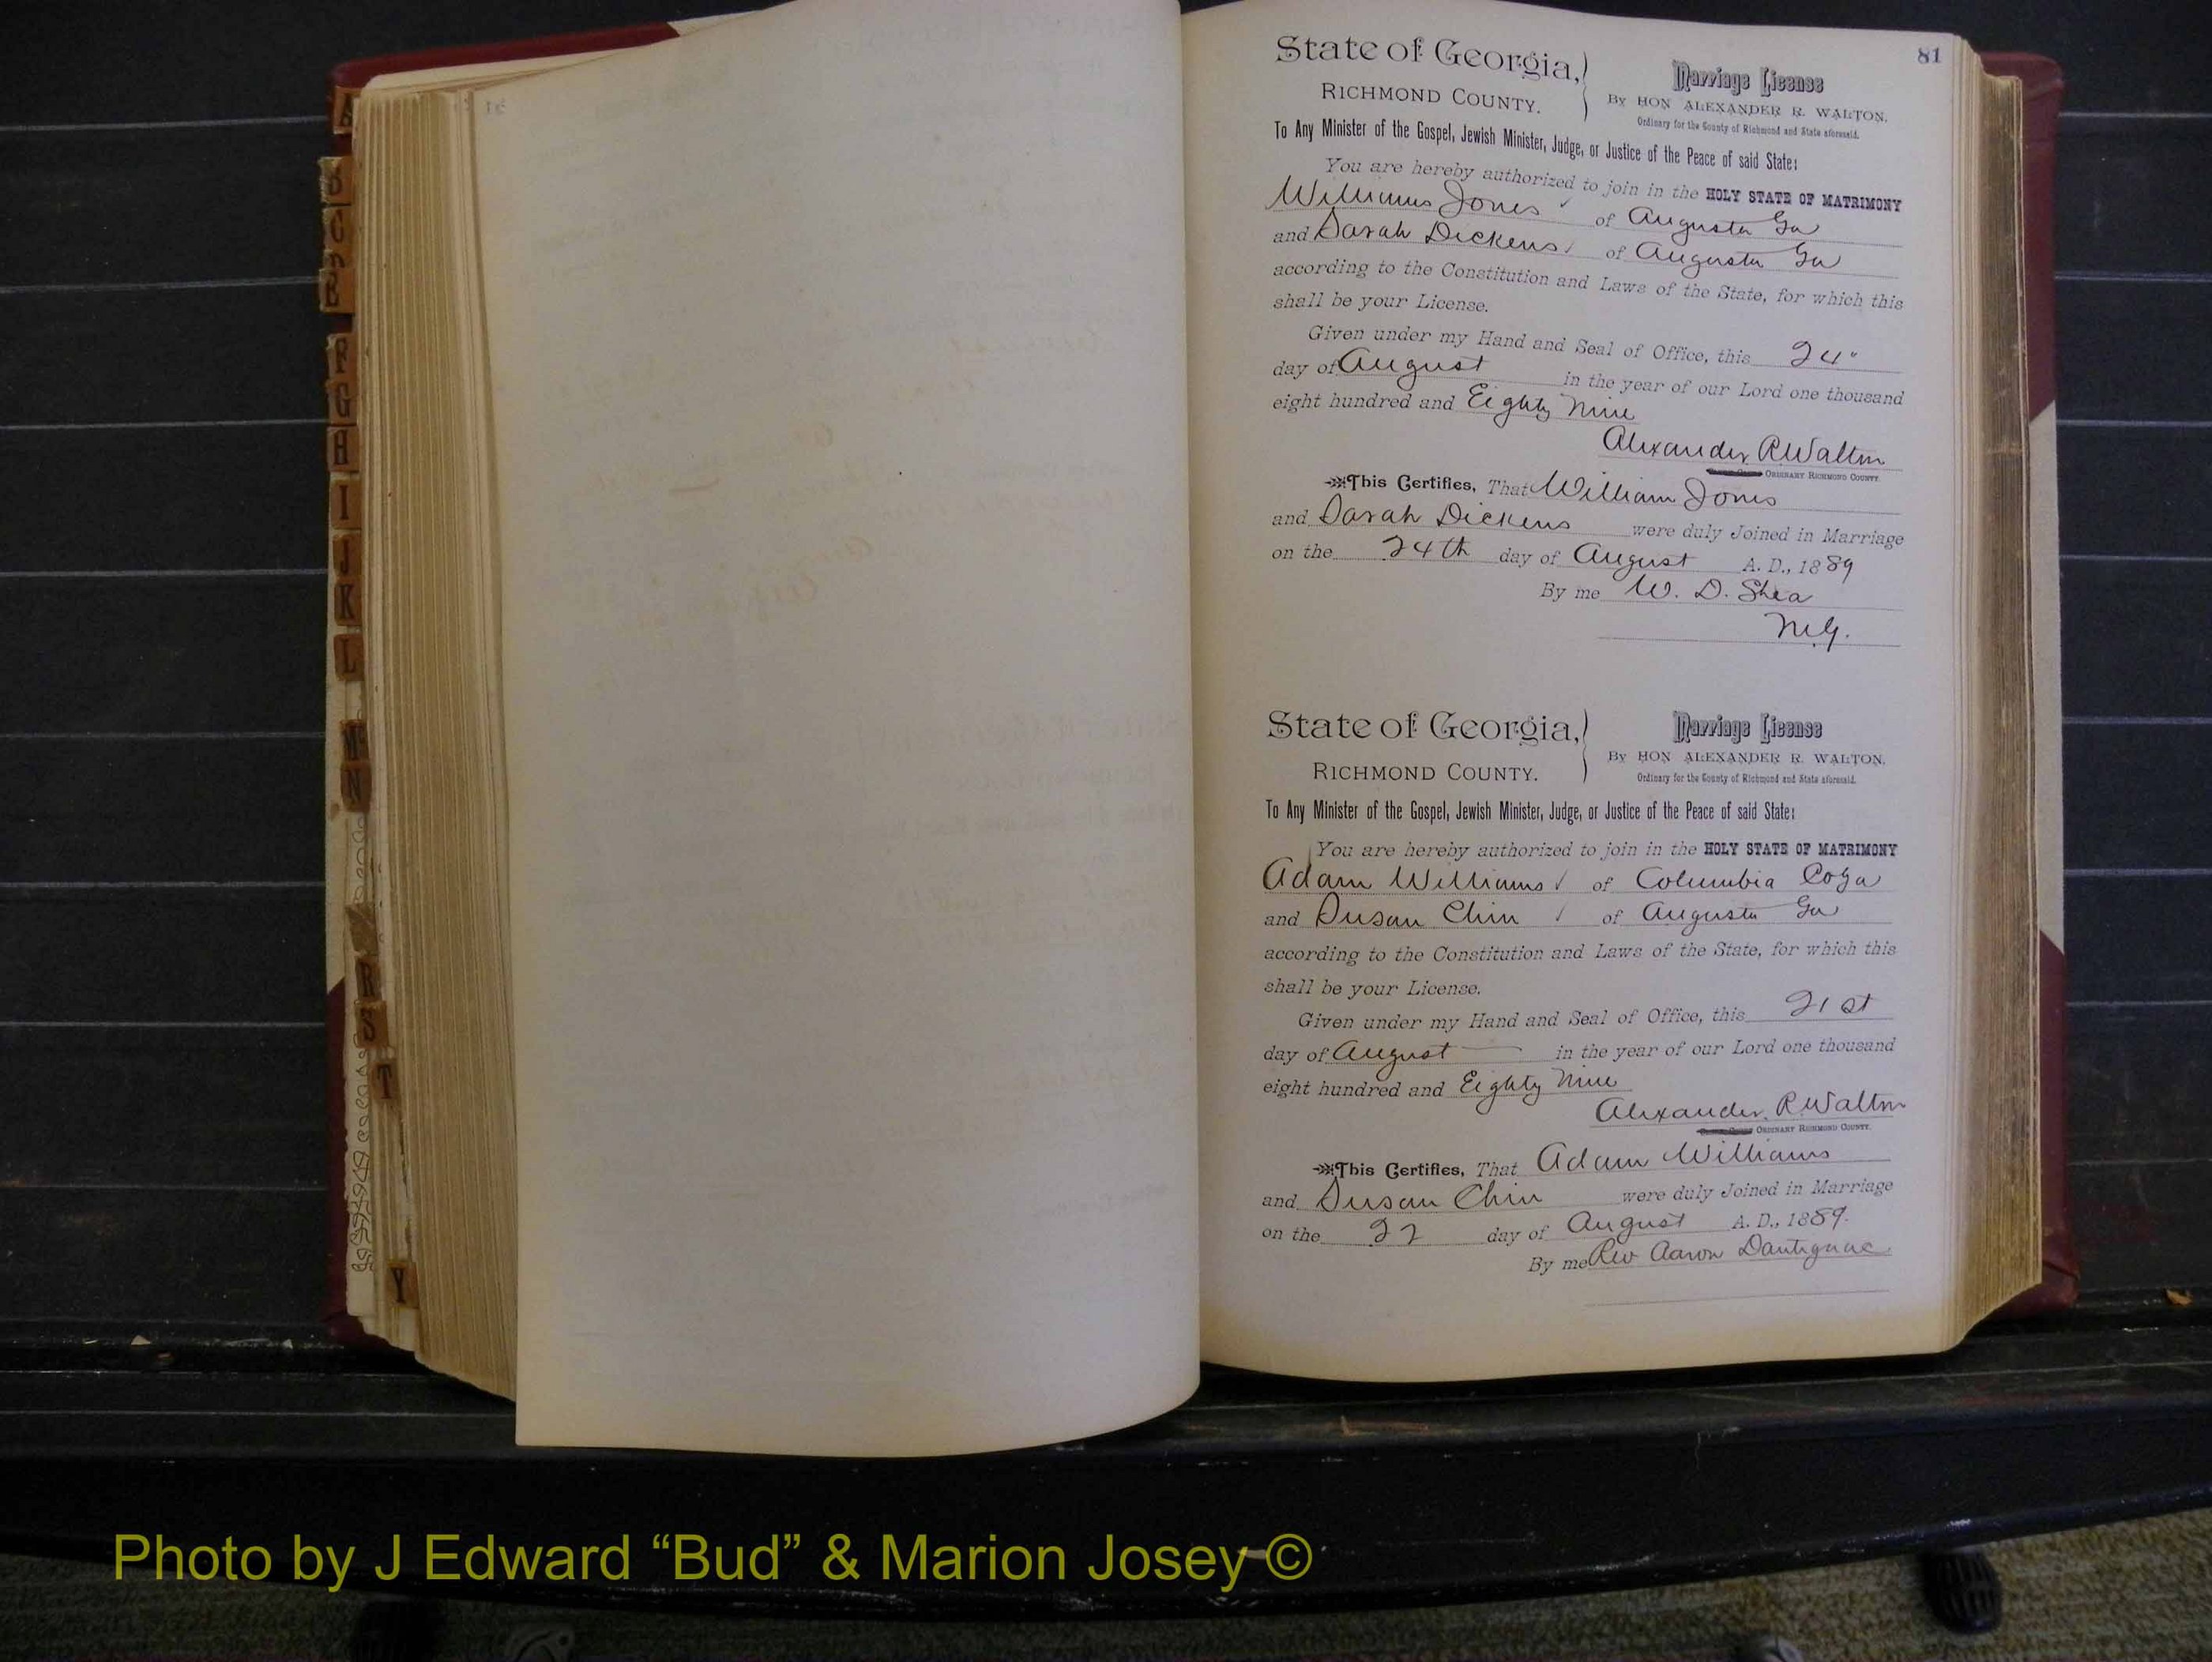 81
State of Georgia,
RICHMOND COUNTY.
Marriage License
By HON ALEXANDER R. WALTON,
Ordinary for the County of Richmond and State aforesaid.
To Any Minister of the Gospel, Jewish Minister, Judge, or Justice of the Peace of said State:
You are hereby authorized to join in the HOLY STATE OF MATRIMONY
Williams Jones of Augusta Ga
and Sarah Dickens of Augusta Ga
according to the Constitution and Laws of the State, for which this
shall be your License.
Given under my Hand and Seal of Office, this 24"
day of August in the year of our Lord one thousand
eight hundred and Eighty Nine
Alexander R Walton
ORDINARY RICHMOND COUNTY.
This Certifies, That William Jones
and Sarah Dickens were duly Joined in Marriage
on the 24th day of August A. D., 1889
By me W. D. Shea
M.G.
State of Georgia,
RICHMOND COUNTY.
Marriage License
By HON ALEXANDER R. WALTON,
Ordinary for the County of Richmond and State aforesaid.
To Any Minister of the Gospel, Jewish Minister, Judge, or Justice of the Peace of said State:
You are hereby authorized to join in the HOLY STATE OF MATRIMONY
Adam Williams of Columbia Co Ga
and Susan Chin of Augusta Ga
according to the Constitution and Laws of the State, for which this
shall be your License.
Given under my Hand and Seal of Office, this 21st
day of August in the year of our Lord one thousand
eight hundred and Eighty Nine
Alexander R Walton
ORDINARY RICHMOND COUNTY.
This Certifies, That Adam Williams
and Susan Chin were duly Joined in Marriage
on the 22 day of August A. D., 1889.
By me Rev Aaron Dantignac
F
G
H
I
J
K
L
N
R
S
T
Y
Photo by J Edward “Bud” & Marion Josey ©